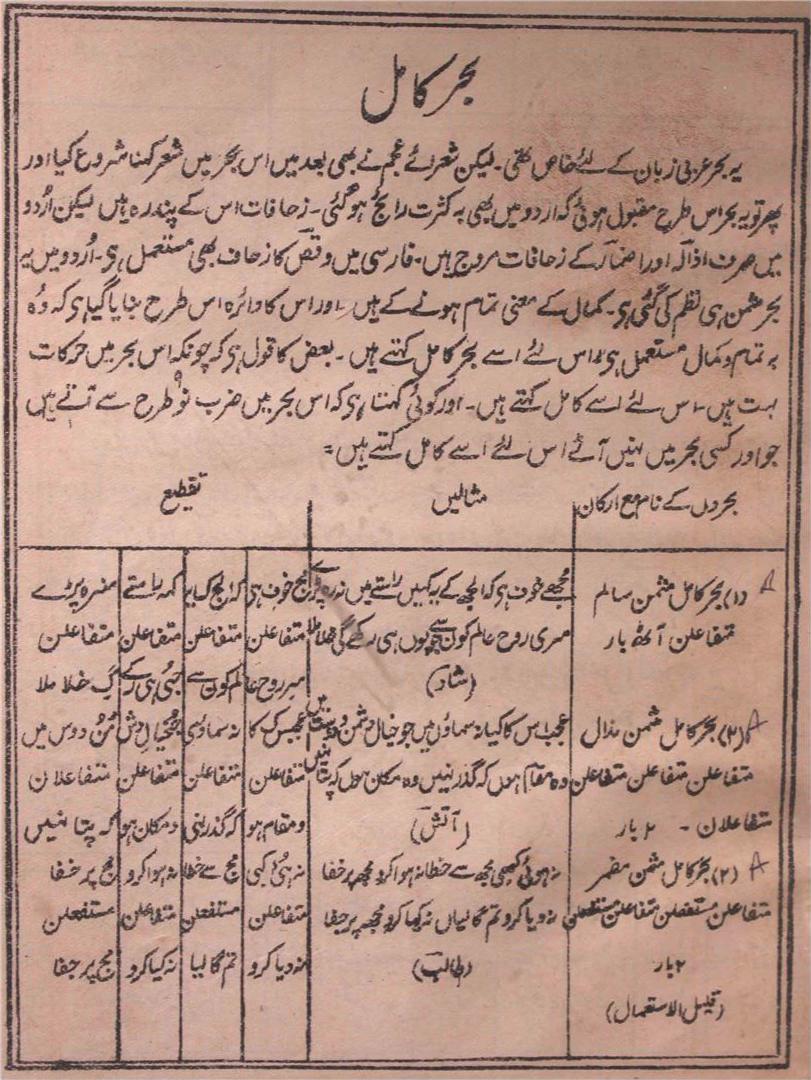 بحر کامل
یہ بحر عربی زبان کے لئے خاص تھی۔ لیکن شعرائے عجم نے بھی بعد میں اس بحر میں شعر کہنا شروع کیا اور
پھر تو یہ بحر اس طرح مقبول ہوئی کہ اردو میں بھی بہ کثرت رائج ہوگئی۔ زحافات اس کے پندرہ ہیں لیکن اُردو
میں صرف اذالہ اور اضمار کے زحافات مروج ہیں۔ فارسی میں وقص کا زحاف بھی مستعمل ہی۔ اُردو میں یہ
بحر مثمن ہی نظم کی گئی ہی۔ کمال کے معنی تمام ہونے کے ہیں۔ اور اس کا دائرہ اس طرح بنایا گیا ہی کہ وُہ
بہ تمام و کمال مستعمل ہی اس لئے اسے بحر کامل کہتے ہیں۔ بعض کا قول ہی کہ چونکہ اس بحر میں حرکات
بہت ہیں۔ اس لئے اسے کامل کہتے ہیں۔ اور کوئی کہتا ہی کہ اس بحر میں ضرب نو طرح سے آتے ہیں
جو اور کسی بحر میں نہیں آتے اس لئے اسے کامل کہتے ہیں۔
بحروں کے نام مع ارکان مثالیں تقطیع
(۱) بحر کامل مثمن سالم مجھے خوف ہی کہ الجھ کے یہ کہیں راستے میں نہ رو پڑے مج خوف ہی کہ الج ک یہ کہہ راستے مے نہ رہ پڑے
متفاعلن آٹھ بار مری روح عالم کون سے جو یوں ہی رکے گی خلا ملا متفاعلن متفاعلن متفاعلن متفاعلن
(شاد) مر روح عا لم کون سے جُ یُ ہی رکے گ خلا ملا
(۲) بحر کامل مثمن مذال عجب اس کا کیا نہ سماؤں میں جو خیال دشمن و دوست میں عجبس ک کا نہ سماؤ مے جُ خیال دش مَنُ دوس میں
متفاعلن متفاعلن متفاعلن وہ مقام ہوں کہ گذر نہیں وہ مکان ہوں کہ پتا نہیں متفاعلن متفاعلن متفاعلن متفاعلان
متفاعلان۔ ۲ بار (آتش) و مقام ہو کہ گذر نہی و مکان ہو کہ پتا نہیں
(۲) بحر کامل مثمن مضمر نہ ہوئی کبھی مجھ سے خطا نہ ہوا کرو مجھ پر خفا نہ ہُئی کبی مج سے خطا نہ ہوا کرو مج پر خفا
متفاعلن مستفعلن متفاعلن مستفعلن نہ دیا کرو تم گالیاں نہ کیا کرو مجھ پر جفا متفاعلن مستفعلن متفاعلن مستفعلن
۲ بار (طالب) نہ دیا کرو تم گالیا نہ کیا کرو مج پر جفا
(قلیل الاستعمال)